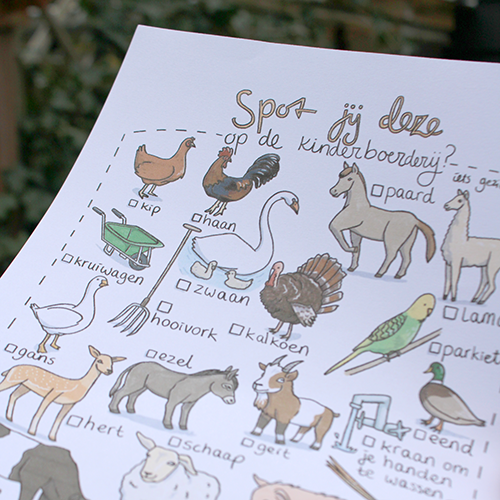 Spot jij deze
op de kinderboerderij?
kip
haan
paard
kruiwagen
hooivork
zwaan
kalkoen
parkiet
gans
ezel
hert
schaap
geit
eend
kraan om
je handen
te wassen